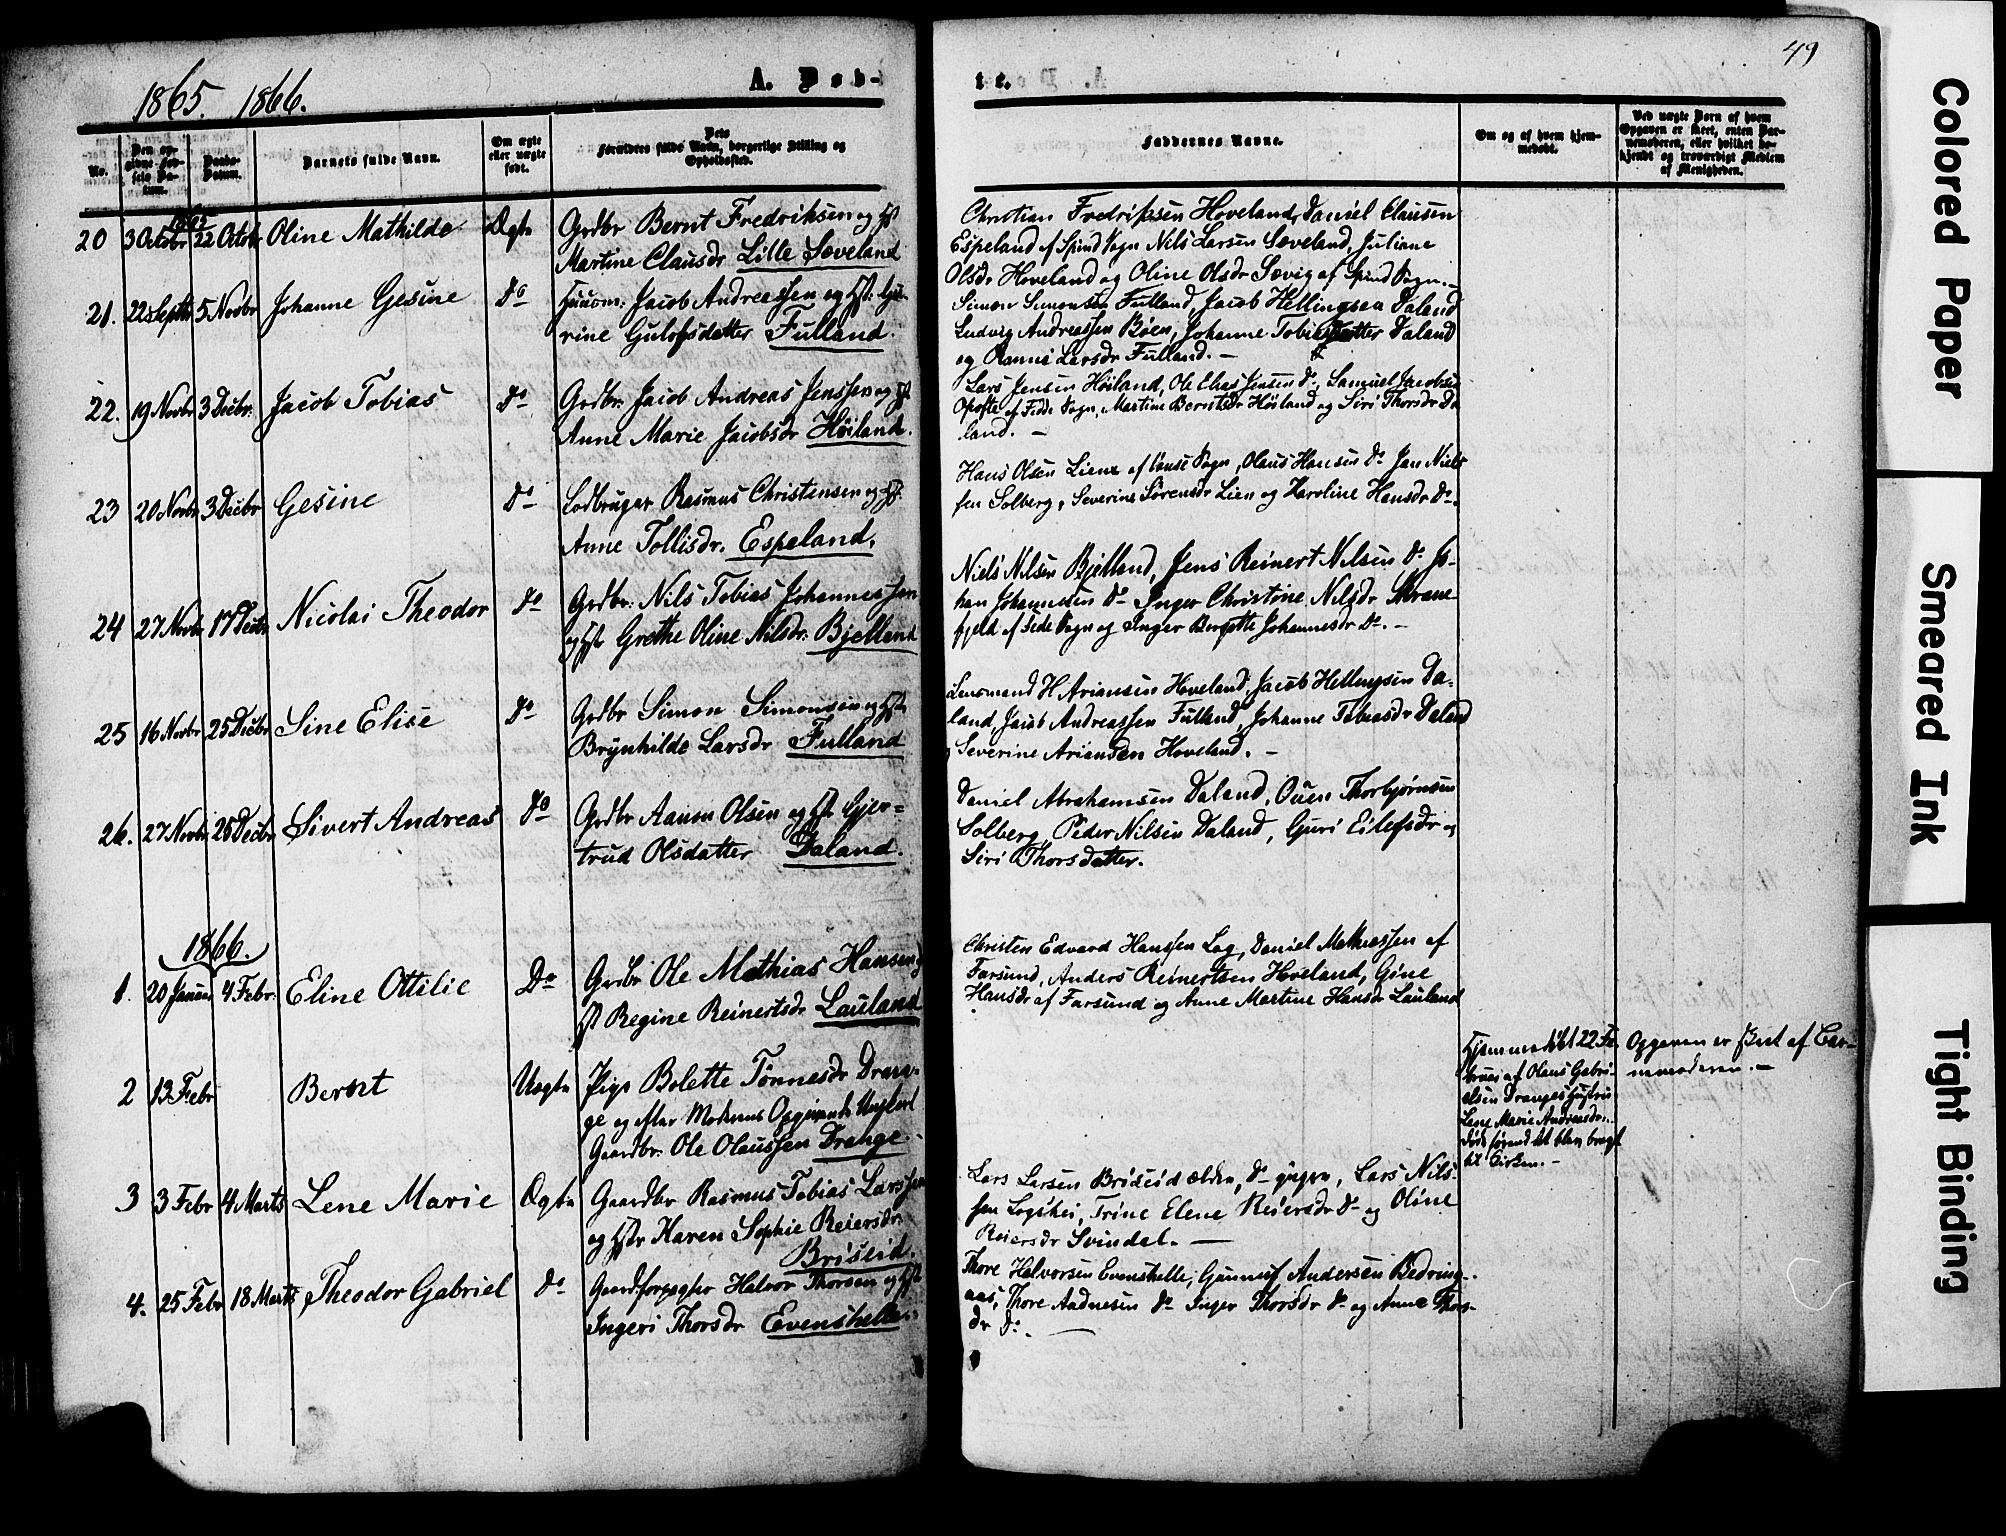 1865. 1866.
A. Døb-
No.
Den opgivne Fødsels Datum.
Daabs-Datum.
Barnets fulde Navn.
Om ægte eller uægte født.
Dets Forældres fulde Navn, borgerlige Stilling og Opholdssted.
1865
20 3 Octobr 22 Octobr Oline Mathilde Ægte Grdbr Bernt Fredriksen og Hst
Martine Clausdr Lille Sæveland
21. 22 Septbr 5 Novbr Johanne Gesine Do Huusm: Jacob Andreassen og Hst:
rine Gulofsdatter Fulland.
22. 19 Novbr 3 Decbr. Jacob Tobias Do Grdbr. Jacob Andreas Jenssen og Hst
Anne Marie Jacobsdr Høiland.
23 20 Novbr 3 Decbr Gesine Do Lodbruger Rasmus Christensen og Hst.
Anne Tollisdr. Espeland.
24 27 Novbr 17 Decbr Nicolai Theodor Do Grdbr. Nils Tobias Johannessen
og Hst Grethe Oline Nilsdr. Bjelland
25 16 Novbr 25 Decbr Sine Elise Do Grdbr Simon Simonsen og Hst
Brynhilde Larsdr Fulland
26. 27 Novbr 25 Decbr Sivert Andreas Do Grdbr Aanen Olsen og Hst Gjer-
trud Olsdatter Daland.
1866.
1. 20 Januar 4 Febr. Eline Ottilie Do Grdbr Ole Mathias Hansen og
Hst Regine Reinertsdr Lauland
2 13 Febr Bernt Uægte Pige Bolette Tønnesdr Dran-
ge og efter Moderens Opgivende Ungkarl
Gaardbr. Ole Olaussen Drange.
3 3 Febr 4 Marts Lene Marie Ægte Gaardbr Rasmus Tobias Larssen
og Hstr Karen Sophie Reiersdr.
Briseid.
4. 25 Febr 18 Marts Theodor Gabriel Do Gaardforpagter Halvor Thorsen og Hst
Ingeri Thorsdr Evenstelle.
49
te.
Faddernes Navne.
Om og af hvem hjemmedøbt.
Ved uægte Børn af hvem Opgaven er skeet, enten Barnemoderen, eller hvilket bekjendt og troværdigt Medlem af Menigheden.
Christian Fredrikssen Hoveland, Daniel Clausen
Espeland af Spind Sogn Nils Larsen Sæveland, Juliane
Olsdr Hoveland og Oline Olsdr Sævig af Spind Sogn.-
Simon Simonsen Fulland, Jacob Hellingsen Daland
Ludvig Andreassen Bøen, Johanne Tobiasdatter Daland
og Larsdr Fulland. -
Lars Jensen Høiland, Ole Elias Jensen Do, Samuel Jacobsen
Opofte af Fedde Sogn, Martine Berntsdr Høiland og Siri Thorsdr Da
land. -
Hans Olsen Liene af Vanse Sogn, Olaus Hansen Do Jan Niels
sen Solberg, Severine Sørensdr Lien og Karoline Hansdr Do-.
Niels Nilsen Bjelland, Jens Reinert Nilsen Do Jo-
han Johannesen Do Inger Christine Nilsdr Skrane
fjeld af Fede Sogn og Inger Bergitte Johannesdr Do. -
Lensmand H Ariansen Hoveland, Jacob Hellingsen Da-
land, Jacob Andreassen Fulland, Johanne Tobiasdr Daland
og Severine Ariansen Hoveland. -
Daniel Abrahamsen Daland, Ouen Thorbjørnsen
Solberg, Peder Nilsen Daland, Guri Eilefsdr og
Siri Thorsdatter.
Christen Edvard Hanssen Log, Daniel Mathiassen af
Farsund, Anders Reinertsen Hoveland, Gine
Hansdr af Farsund og Anne Martine Hansdr Lauland
Hjemmedøbt 22 Fe-
bruar af Olaus Gabri-
elsen Dranges Hustru
Lene Marie Andreasdr.
Døde førend det blev bragt
til Kirken. -
Opgaven er skeet af Bar-
nemoderen. -
Lars Larsen Briseid ældre, Do yngre, Lars Nils-
sen Logshei, Trine Elene Reiersdr Do og Oline
Reiersdr Svindal. -
Thore Halvorsen Evenstelle, Gunnuf Andersen Bedring-
aas, Thore Aadnesen Do Inger Thorsdr Do og Anne Thors-
dr Do. -
Colored Paper
Smeared Ink
Tight Binding